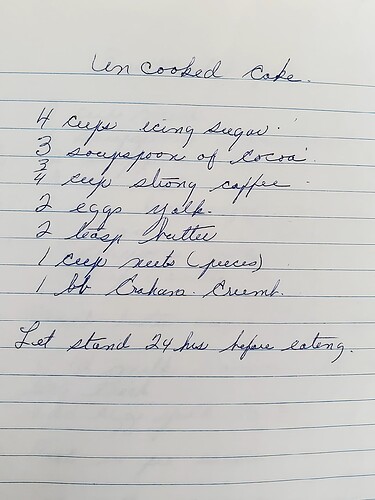 Uncooked Cake.
4 cups icing sugar.
3 soupspoon of Cocoa.
3/4 cup strong coffee.
2 eggs yolk.
2 teasp butter
1 cup nuts (pieces)
1 bx Graham Crumb.
Let stand 24 hrs before eateng.